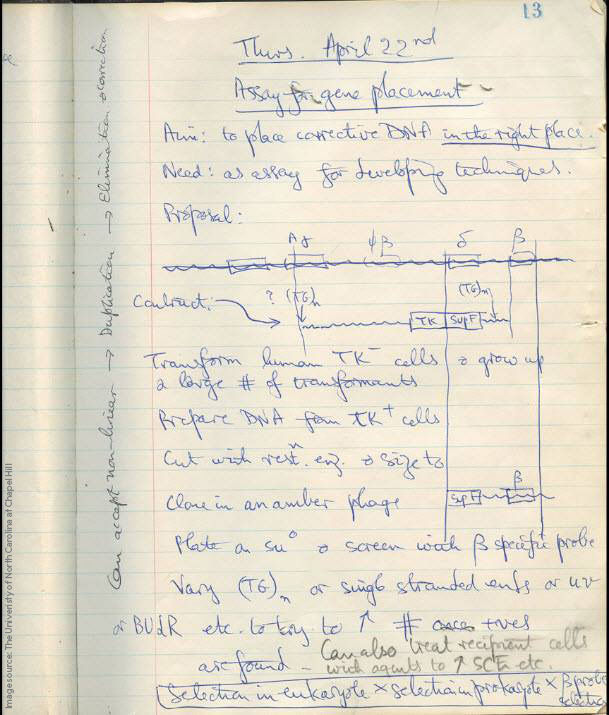 13
Thurs. April 22nd
Assay for gene placement
Aim: to place corrective DNA in the right place.
Need: as assay for developing techniques.
Proposal:
Aγ ψβ δ β
Contruct: ? (TG)n (TG)n
TK SupF
Transform human TK- cells & grow up
a large # of transformants
Prepare DNA from TK+ cells
Cut with restn. enz. & size to
β
SupF
Clone in an amber phage
Plate on su° & screen with β specific probe
Vary (TG)n or single stranded ends or uv
or BUdR etc. to try to ↑ # +ves
are found - Can also treat recipient cells
with agents to ↑ SCE etc.
Selection in eukaryote × selection in prokaryote × β probe
selection
Can accept non-linear → Duplication → Elimination & correction
Image source: The University of North Carolina at Chapel Hill